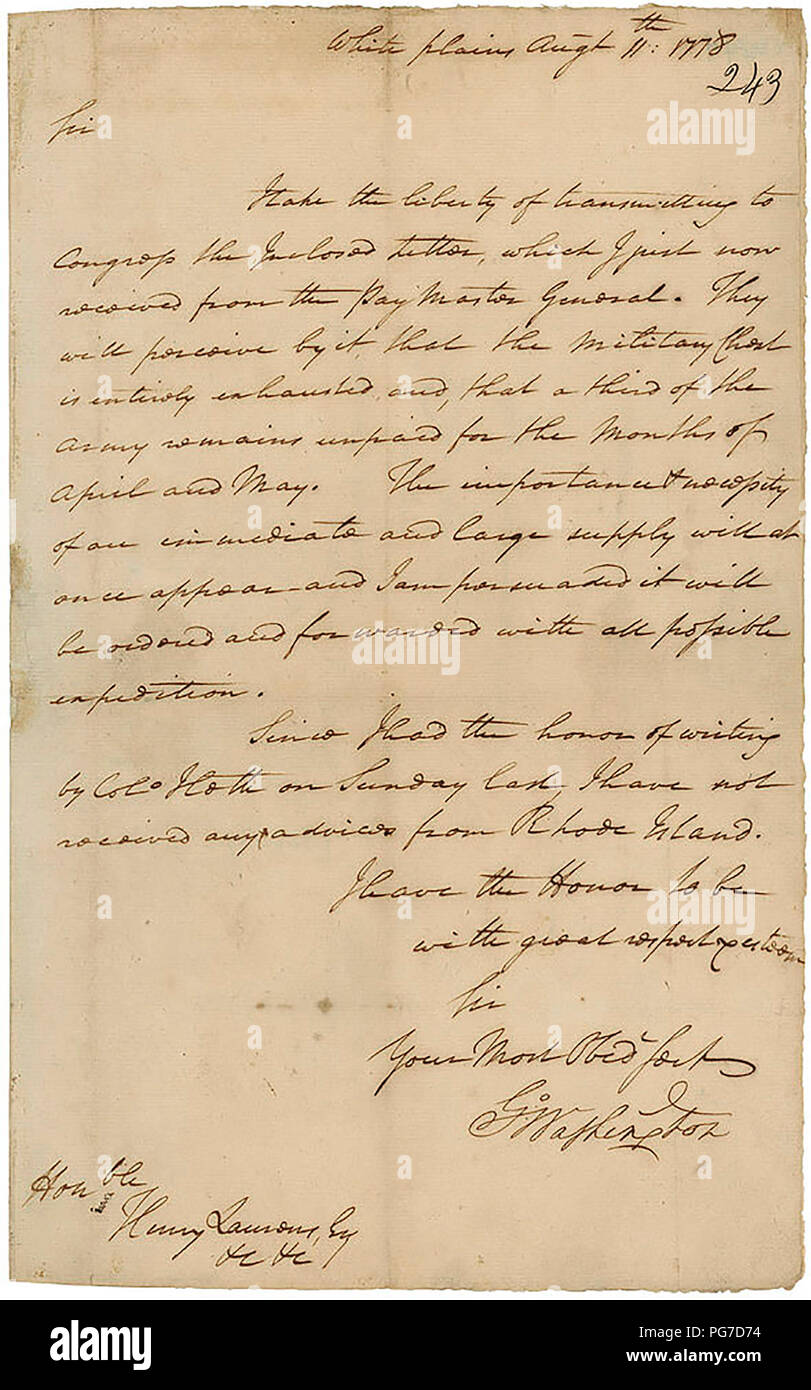 White plains Augt 11th: 1778
243
Sir
I take the liberty of transmitting to
Congress the Inclosed Letter, which I just now
received from the Pay Master General. They
will perceive by it, that the Military Chest
is entirely exhausted and, that a third of the
Army remains unpaid for the Months of
April and May. The importance & necessity
of an immediate and large supply will at
once appear and I am persuaded it will
be ordered and forwarded with all possible
expedition.
Since I had the honor of writing
by Colo Heth on Sunday last, I have not
received any advices from Rhode Island.
I have the Honor to be
with great respect & esteem
Sir
Your Most Obedt Servt
Go: Washington
Honble
Henry Laurens, Esq
&c &c
alamy
alamy
alamy
alamy
a
a
a
alamy
Image ID: PG7D74
www.alamy.com